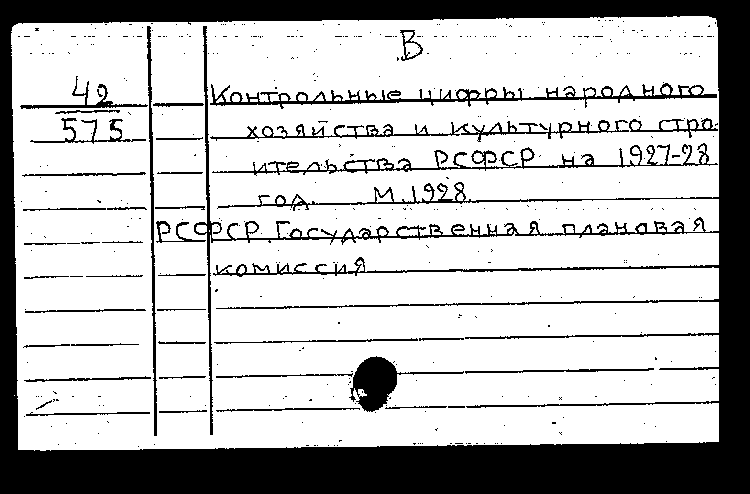 В
42
575
Контрольные цифры народного
хозяйства и культурного стро-
ительства РСФСР на 1927-28
год. М.1928.
РСФСР. Государственная плановая
комиссия